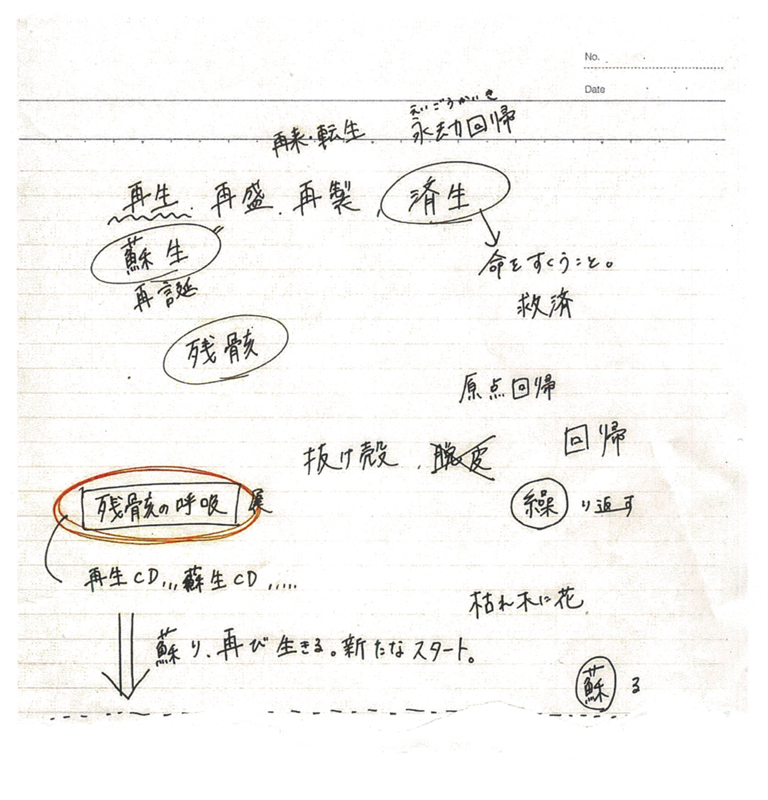 No.
Date
えいごうかいき
再来・転生 永劫回帰
再生、再盛、再製、済生
蘇生
命をすくうこと。
再誕
救済
残骸
原点回帰
回帰
抜け殻、
残骸の呼吸展
繰り返す
再生CD,,,蘇生CD,,,,,
枯れ木に花
蘇り、再び生きる。新たなスタート。
蘇る